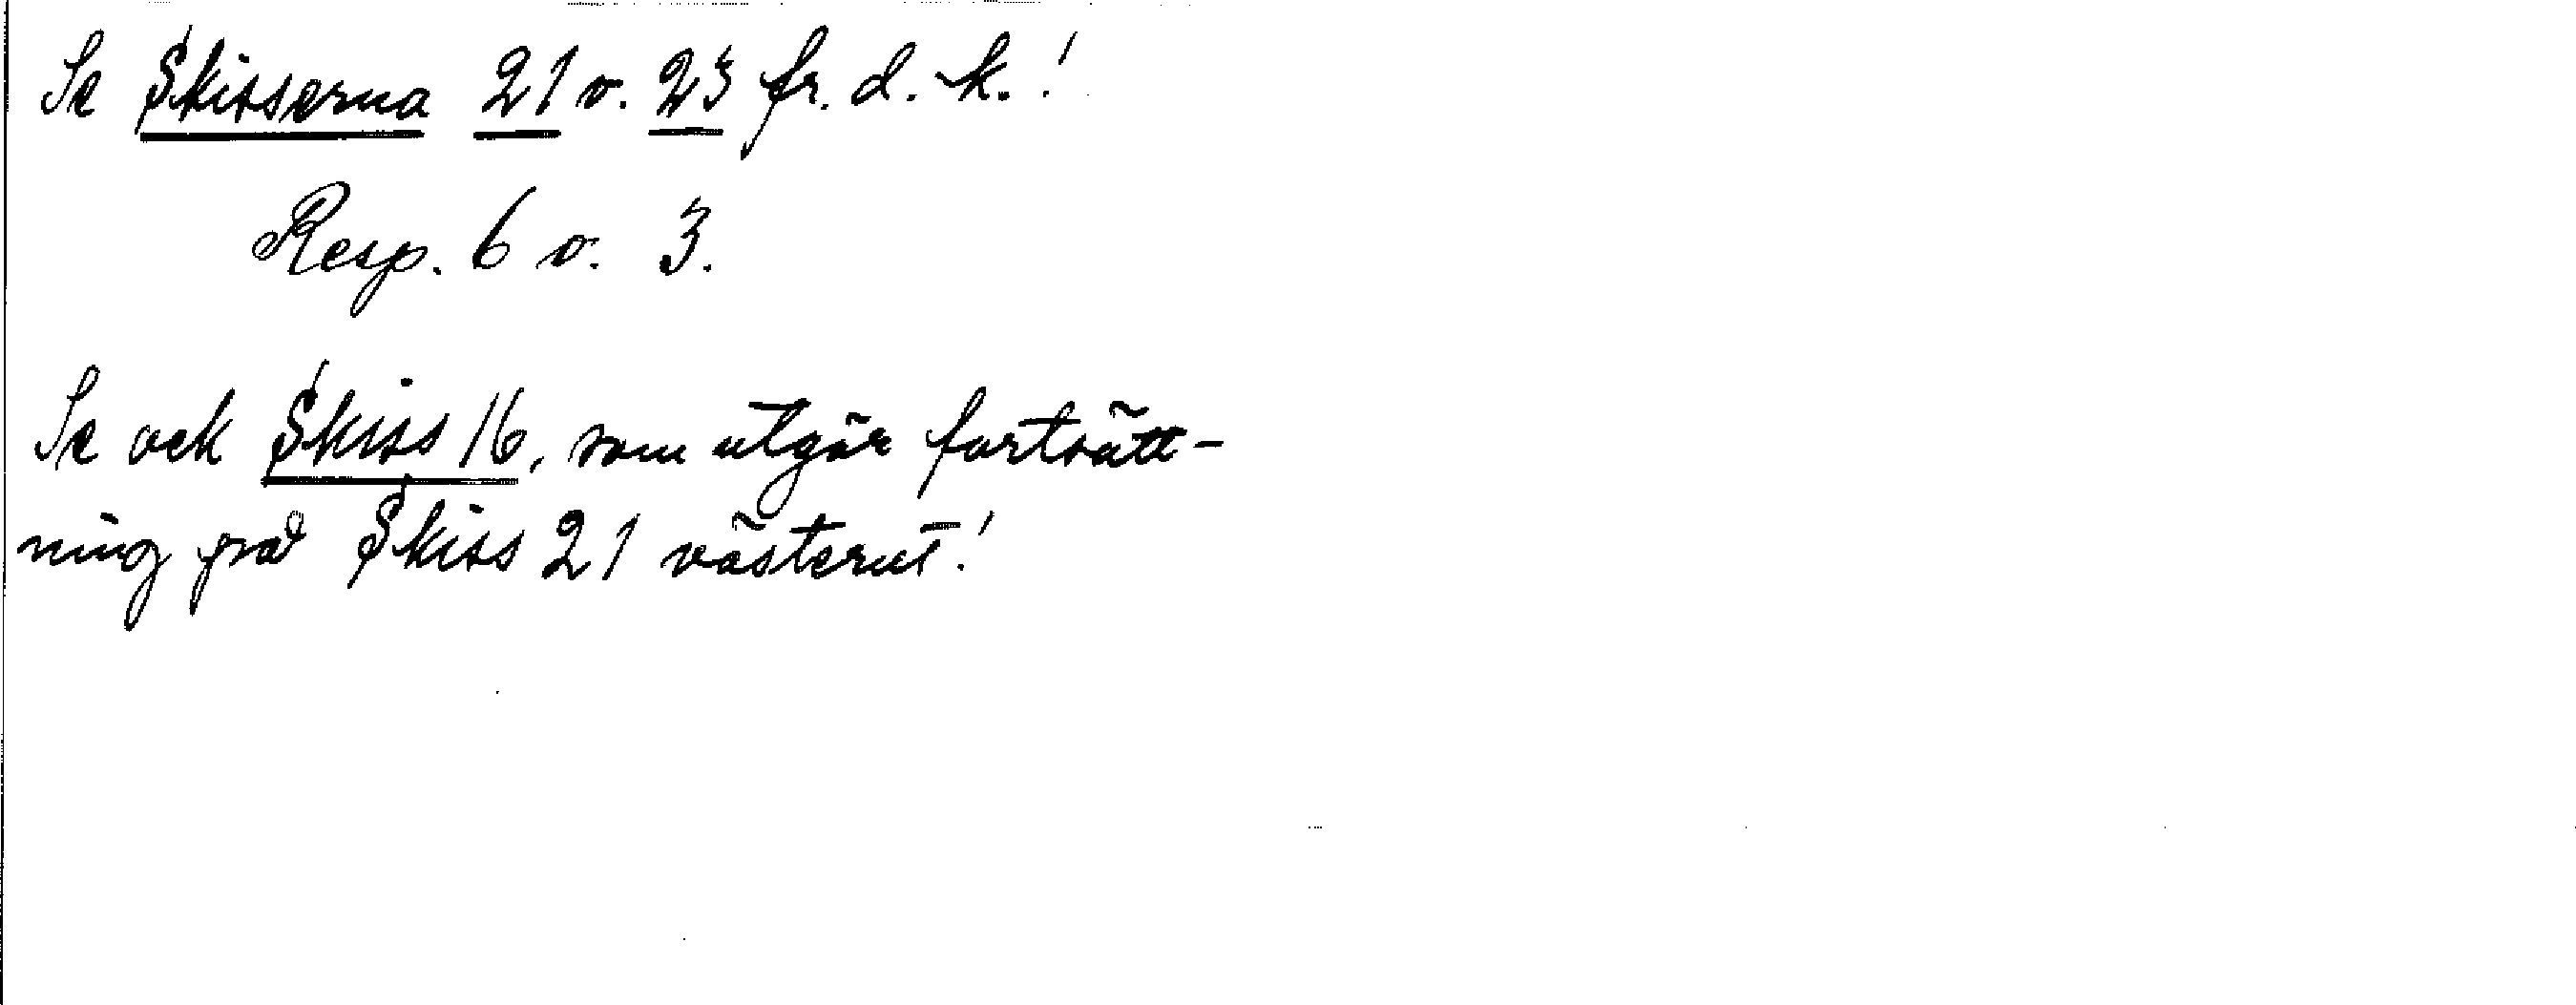 Se Skisserna 21 o. 23 fr. d. k.!
Resp. 6 o. 3.
Se ock Skiss 16, som utgör fortsätt-
ning på Skiss 21 västerut!